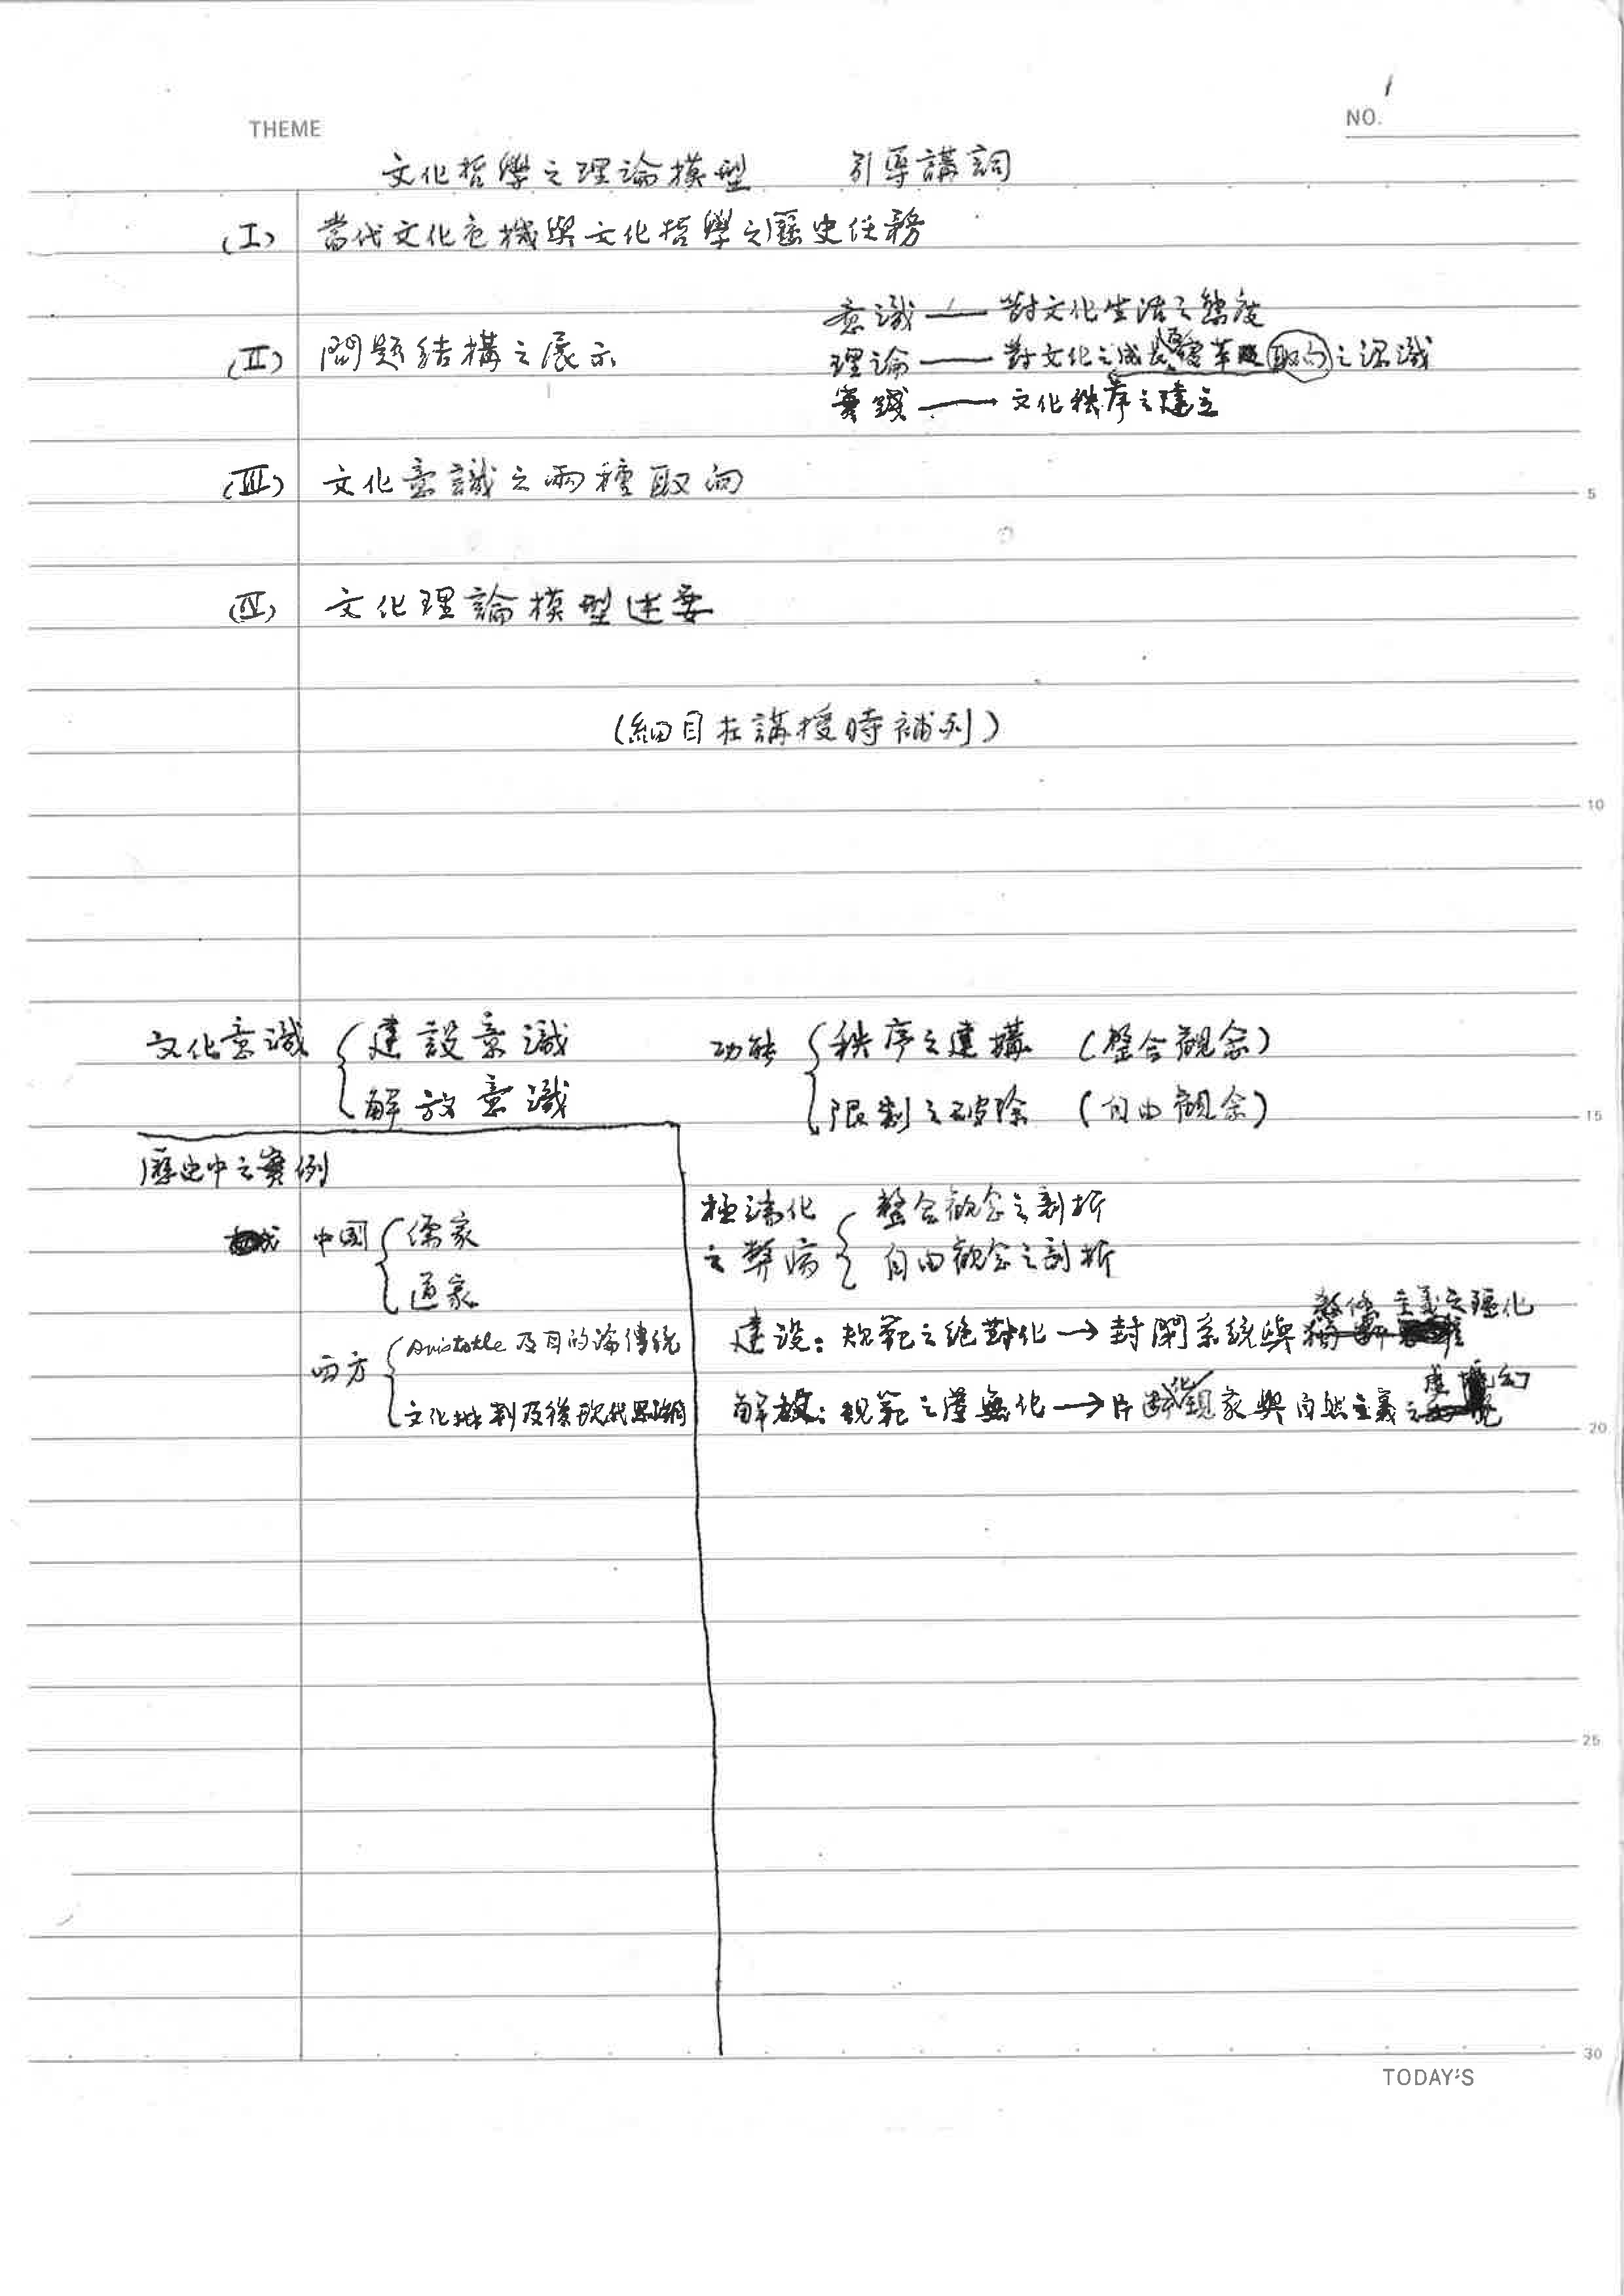 1
THEME
NO.
文化哲學之理論模型 引導講詞
(I) 當代文化危機與文化哲學之歷史任務
意識——對文化生活之態度
(II) 問題結構之展示
理論——對文化之成長變革取向之認識
實踐——文化秩序之建立
(III) 文化意識之兩種取向
5
(IV) 文化理論模型述要
(細目在講授時補列)
10
文化意識 建設意識 功能 秩序之建構 (整合觀念)
解放意識 限制之破除 (自由觀念)
15
歷史中之實例
極端化 整合觀念之剖析
中國 儒家
之弊病 自由觀念之剖析
道家
教條主義之殭化
西方 Aristotle 及目的論傳統
建設：規範之絕對化→封閉系統與
虛幻
文化批判及後現代思潮
解放：規範之虛無化→片面化觀家與自然主義之
20
25
30
TODAY'S